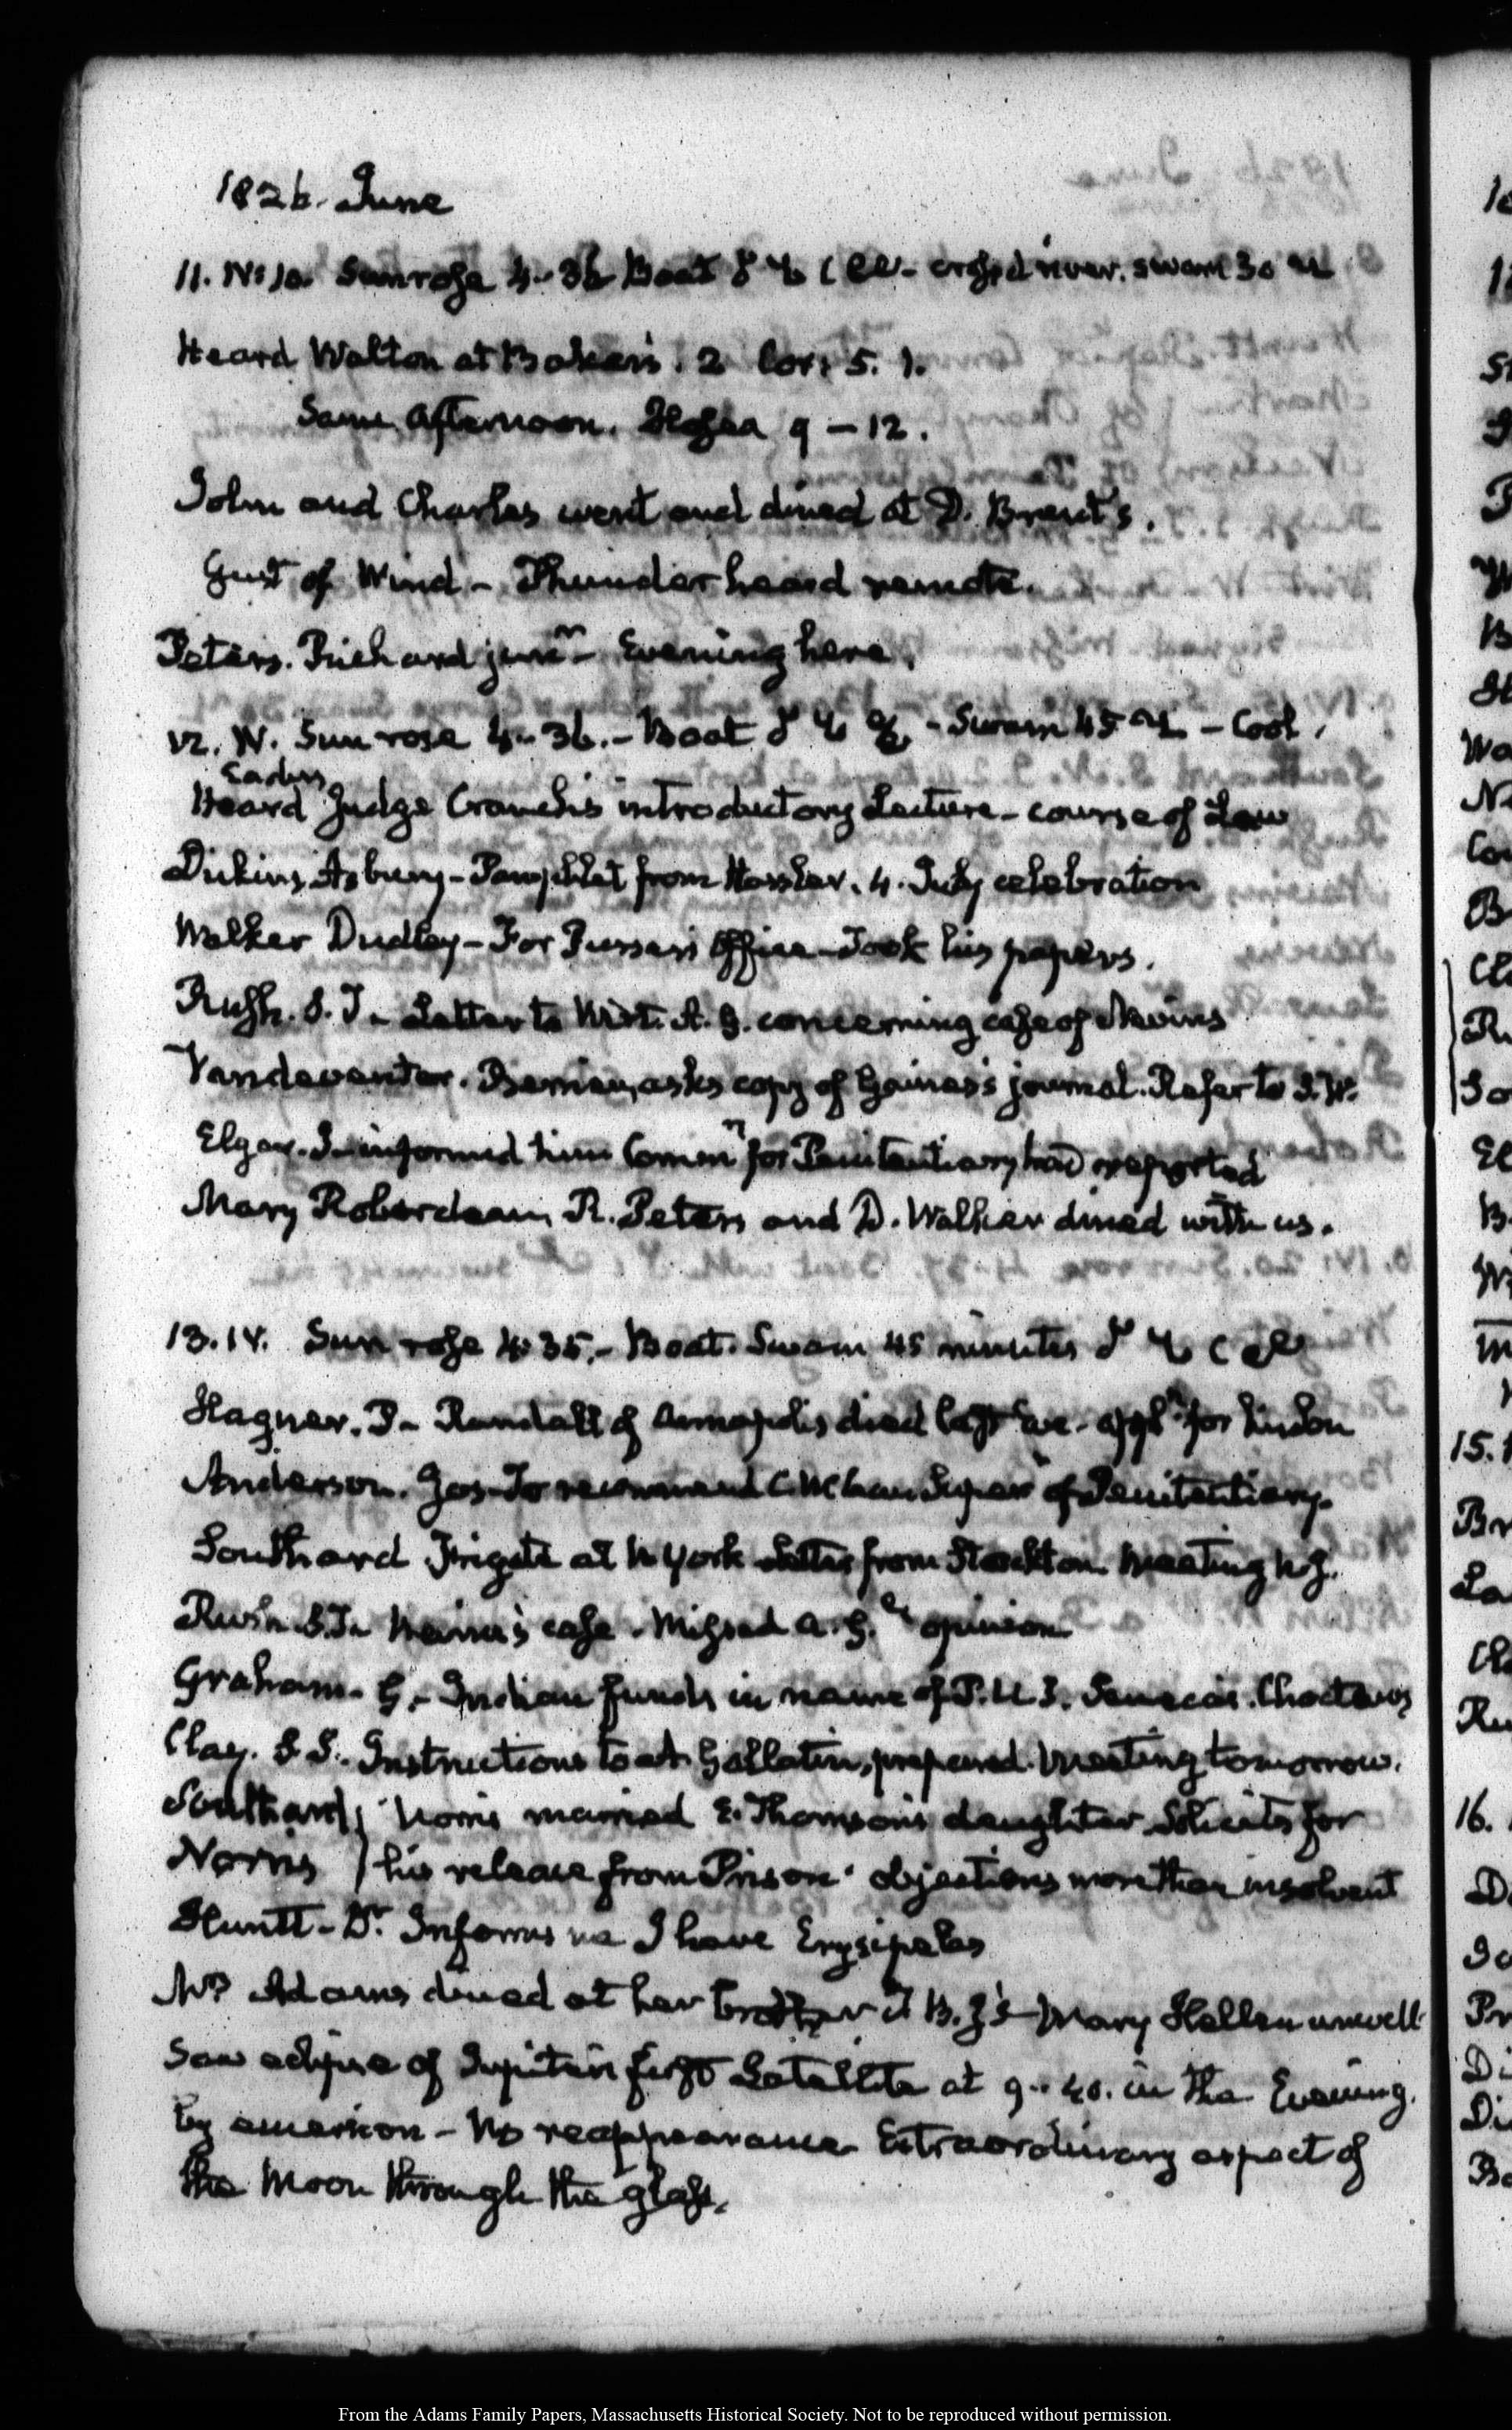 1826. June
11. IV:10. Sun rose 4..36 Boat crossed river. swam 30
Heard Walton at Baker's. 2 Cor: 5. 1.
Same Afternoon. Hosea 9 – 12.
John and Charles went and dined at D. Brent's.
Gust of Wind – Thunder heard remote.
Peters. Richard junr – Evening here.
12. IV. Sun rose 4..36. – Boat – Swam 45 – Cool.
Heard Judge Cranch's introductory Lecture – course of Law
Dickins, Asbury – Pamphlet from Hassler. 4. July celebration
Walker Dudley – For Office – Took his papers.
Rush. S. T – Letter to Wirt. A. G. concerning case of Nevins
Vandeventer. Berrien, asks copy of Gaines's journal. Refer to S. W.
Elgar. J – informed him for Penitentiary had reported
Mary Roberdeau, R. Peters and D. Walker dined with us.
13. IV. Sun rose 4:35. – Boat. Swam 45 minutes
Hagner. P – Randall of Annapolis died last eve – for
Anderson. Jos – To recommend of Penitentiary.
Southard Frigate at N York Letter from Stockton. Meeting N J.
Rush S. T – Nevins's case – A. G. opinion
Graham – G. – Indian funds in name of P. U. S. Senecas. Choctaws
Clay. S S. – Instructions to A. Gallatin, prepared. Meeting tomorrow.
Southard } Norris married E. Thomson's daughter Solicits for
Norris } his release from Prison. objections more than insolvent
Huntt – Dr. Informs me I have Erysipelas
Mrs Adams dined at her brother T B. J's – Mary Hellen unwell
Saw eclipse of Jupiter's first Satellite at 9..40. in the Evening.
by emersion – No reappearance. Extraordinary aspect of
the Moon through the glass.
From the Adams Family Papers, Massachusetts Historical Society. Not to be reproduced without permission.